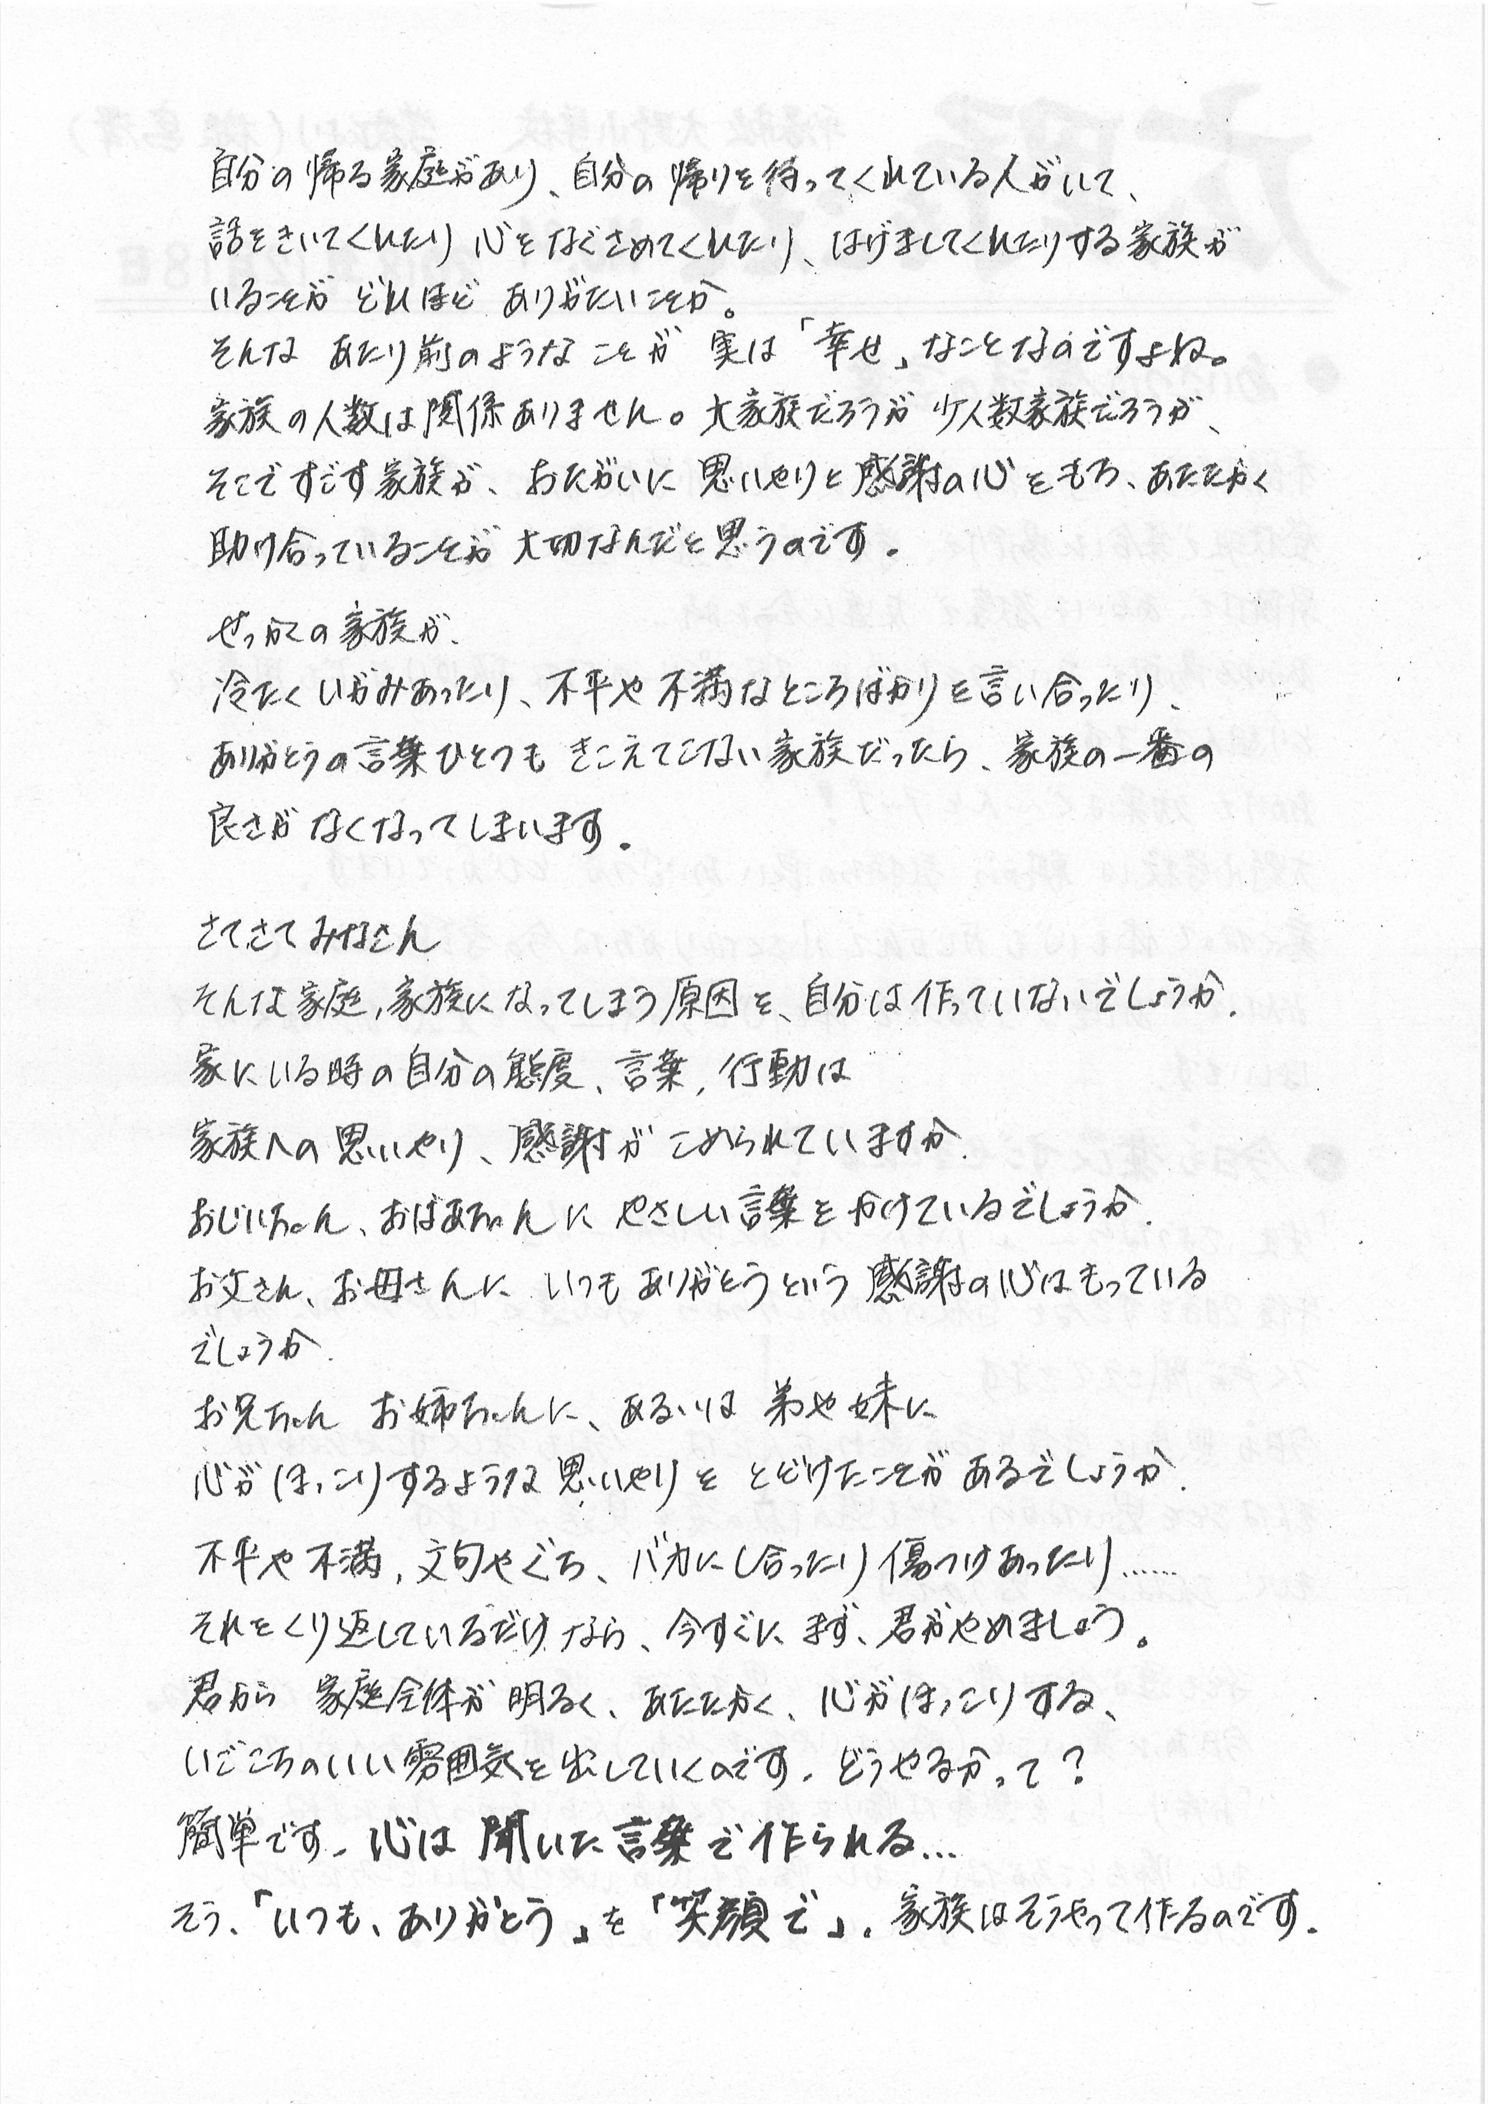 自分の帰る家庭があり、自分の帰りを待ってくれている人がいて、
話をきいてくれたり 心をなぐさめてくれたり、はげましてくれたりする家族が
いることが どれほど ありがたいことか。
そんな あたり前のような ことが 実は「幸せ」なことなのですよね。
家族の人数は関係ありません。大家族だろうが 少人数家族だろうが、
そこですごす家族が、おたがいに 思いやりと感謝の心をもち、あたたかく
助け合っていることが 大切なんだと思うのです。
せっかくの家族が、
冷たくいがみあったり、不平や不満なところばかりを言い合ったり、
ありがとうの言葉ひとつも きこえてこない家族だったら、家族の一番の
良さが なくなってしまいます。
さてさてみなさん
そんな家庭,家族になってしまう原因を、自分は作っていないでしょうか.
家にいる時の自分の態度、言葉,行動は
家族への思いやり、感謝が こめられていますか.
おじいちゃん、おばあちゃんに やさしい言葉をかけているでしょうか.
お父さん、お母さんに いつも ありがとうという 感謝の心はもっている
でしょうか.
お兄ちゃん お姉ちゃんに、あるいは 弟や妹に
心がほっこりするような思いやりを とどけたことが あるでしょうか.
不平や不満,文句やぐち、バカにし合ったり 傷つけあったり……
それをくり返しているだけなら、今すぐに まず、君がやめましょう。
君から 家庭全体が 明るく、あたたかく、心がほっこりする、
いごこちのいい雰囲気を出していくのです. どうやるかって?
簡単です. 心は 聞いた言葉で作られる…
そう、「いつも、ありがとう」を「笑顔で」. 家族はそうやって作るのです.